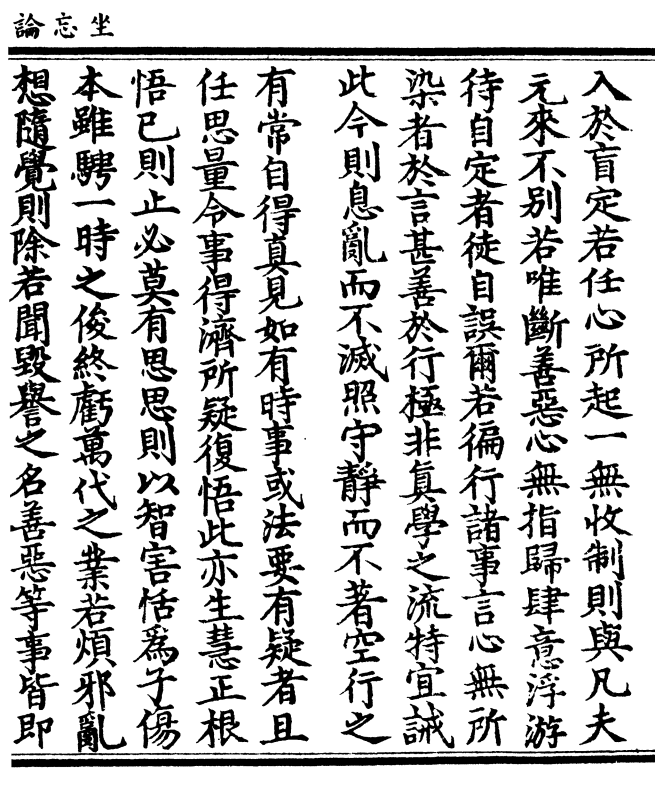 坐忘論
入於盲定若任心所起一無收制則與凡夫
元來不別若唯斷善惡心無指歸肆意浮游
待自定者徒自誤爾若徧行諸事言心無所
染者於言甚善於行極非真學之流特宜誡
此今則息亂而不滅照守靜而不著空行之
有常自得真見如有時事或法要有疑者且
任思量令事得濟所疑復悟此亦生慧正根
悟已則止必莫有思思則以智害恬為子傷
本雖騁一時之俊終虧萬代之業若煩邪亂
想隨覺則除若聞毀譽之名善惡等事皆即